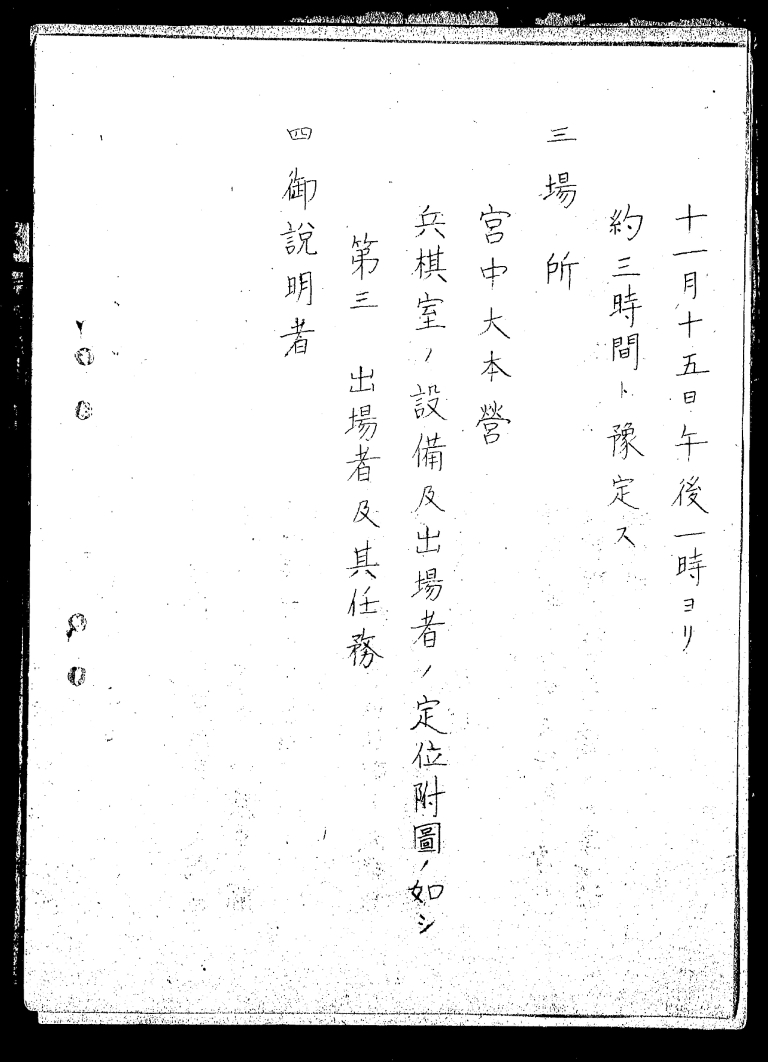 十一月十五日午後一時ヨリ
約三時間ト豫定ス
三場所
宮中大本營
兵棋室ノ設備及出場者ノ定位附圖ノ如シ
第三 出場者及其任務
四御説明者